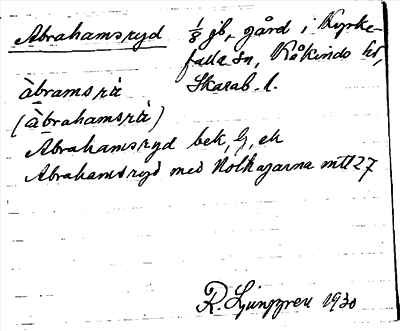 Abrahamsryd 1/8 jb, gård i Kyrke-
falla sn, Kåkinds hd,
Skarab. l.
àbramsrà
(àbrahamsrà)
Abrahamsryd bek, G, ek
Abrahamsryd med Holkagarna mtl 27
R. Ljunggren 1930